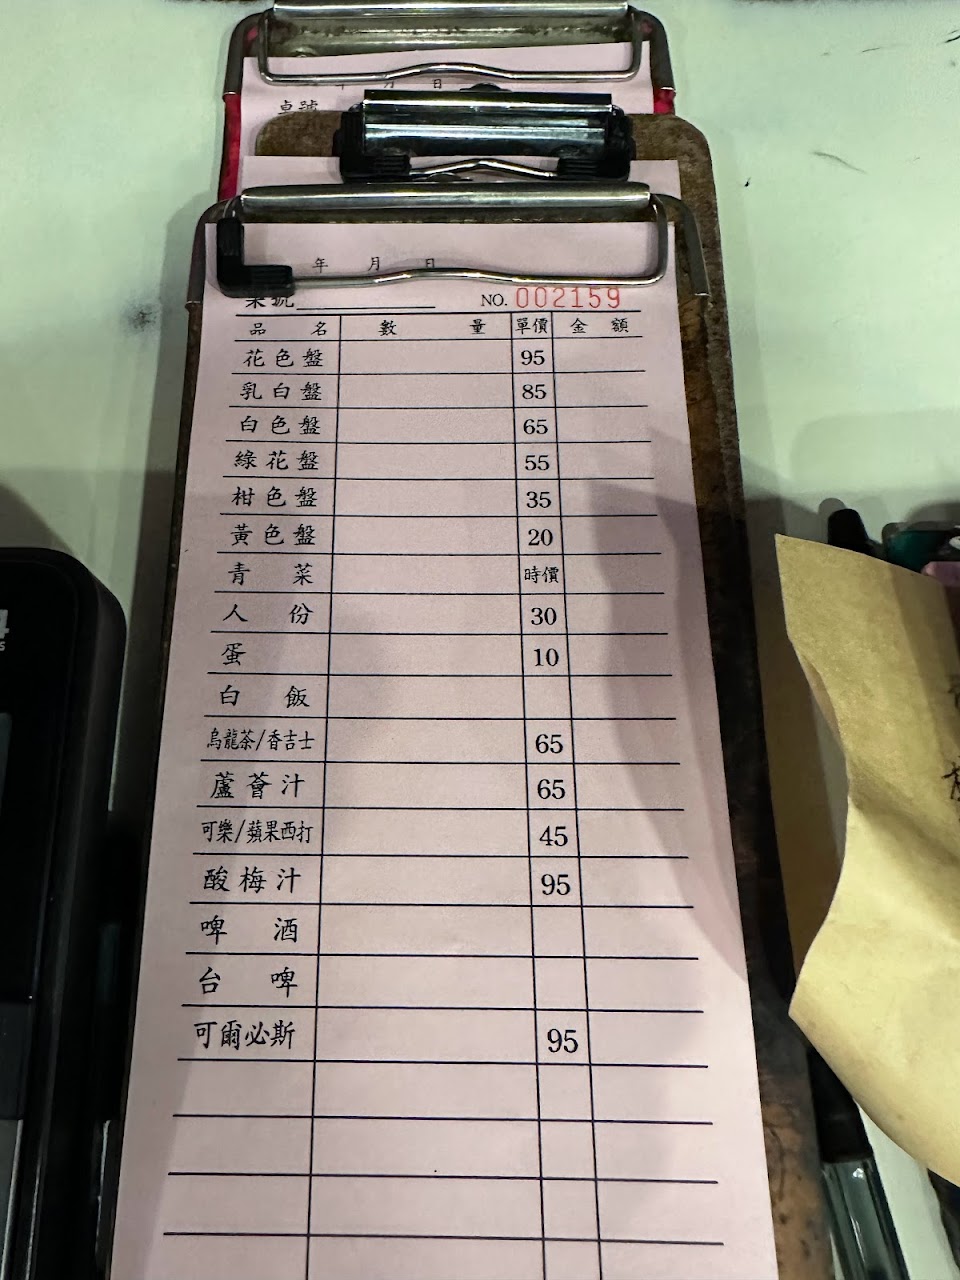 年 月 日
桌號
年 月 日
桌號 NO. 002159
品名 數量 單價 金額
花色盤 95
乳白盤 85
白色盤 65
綠花盤 55
柑色盤 35
黃色盤 20
青菜 時價
人份 30
蛋 10
白飯
烏龍茶/香吉士 65
蘆薈汁 65
可樂/蘋果西打 45
酸梅汁 95
啤酒
台啤
可爾必斯 95